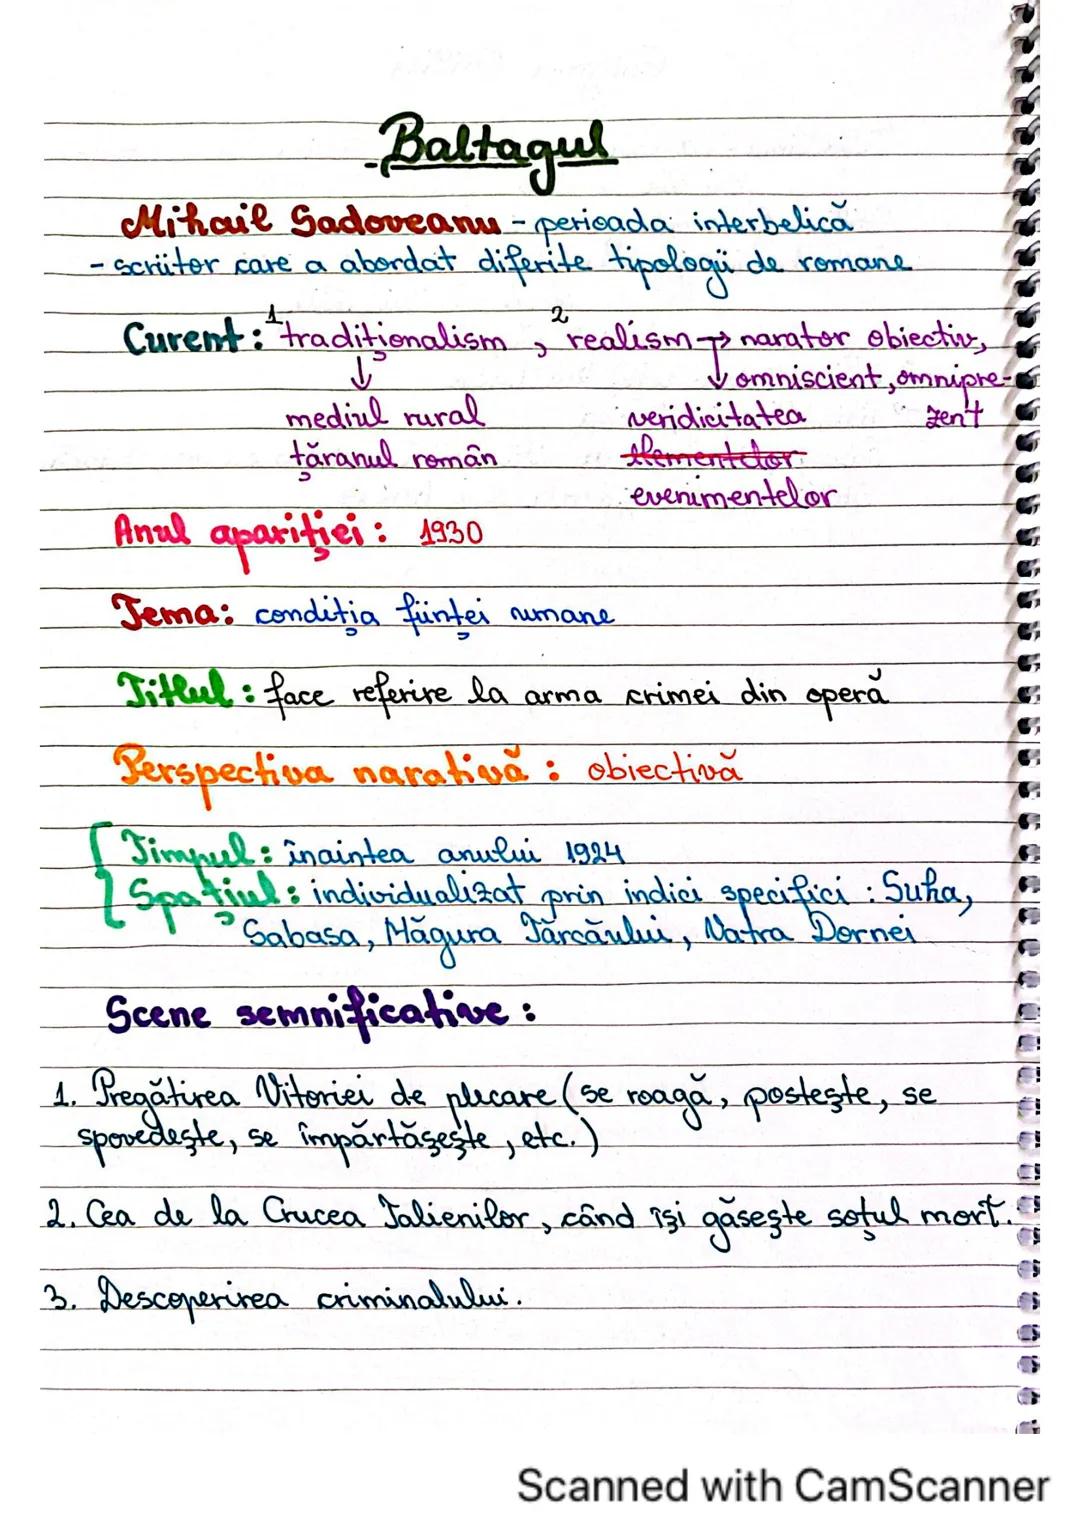 Baltagul
Mihail Sadoveanu - perioada interbelică
- scriitor care a abordat diferite tipologii de romane
Curent: 1 tradiționalism, 2 realism → narator obiectiv,
↓ ↓ omniscient, omnipre-
mediul rural veridicitatea zent
țăranul român elementelor
evenimentelor
Anul apariției: 1930
Tema: condiția ființei umane
Titlul: face referire la arma crimei din operă
Perspectiva narativă: obiectivă
Timpul: înaintea anului 1924
Spațiul: individualizat prin indici specifici: Suha,
Sabasa, Măgura Tărcăului, Vatra Dornei
Scene semnificative:
1. Pregătirea Vitoriei de plecare (se roagă, postește, se
spovedește, se împărtășește, etc.)
2. Cea de la Crucea Talienilor, când își găsește soțul mort.
3. Descoperirea criminalului.
Scanned with CamScanner